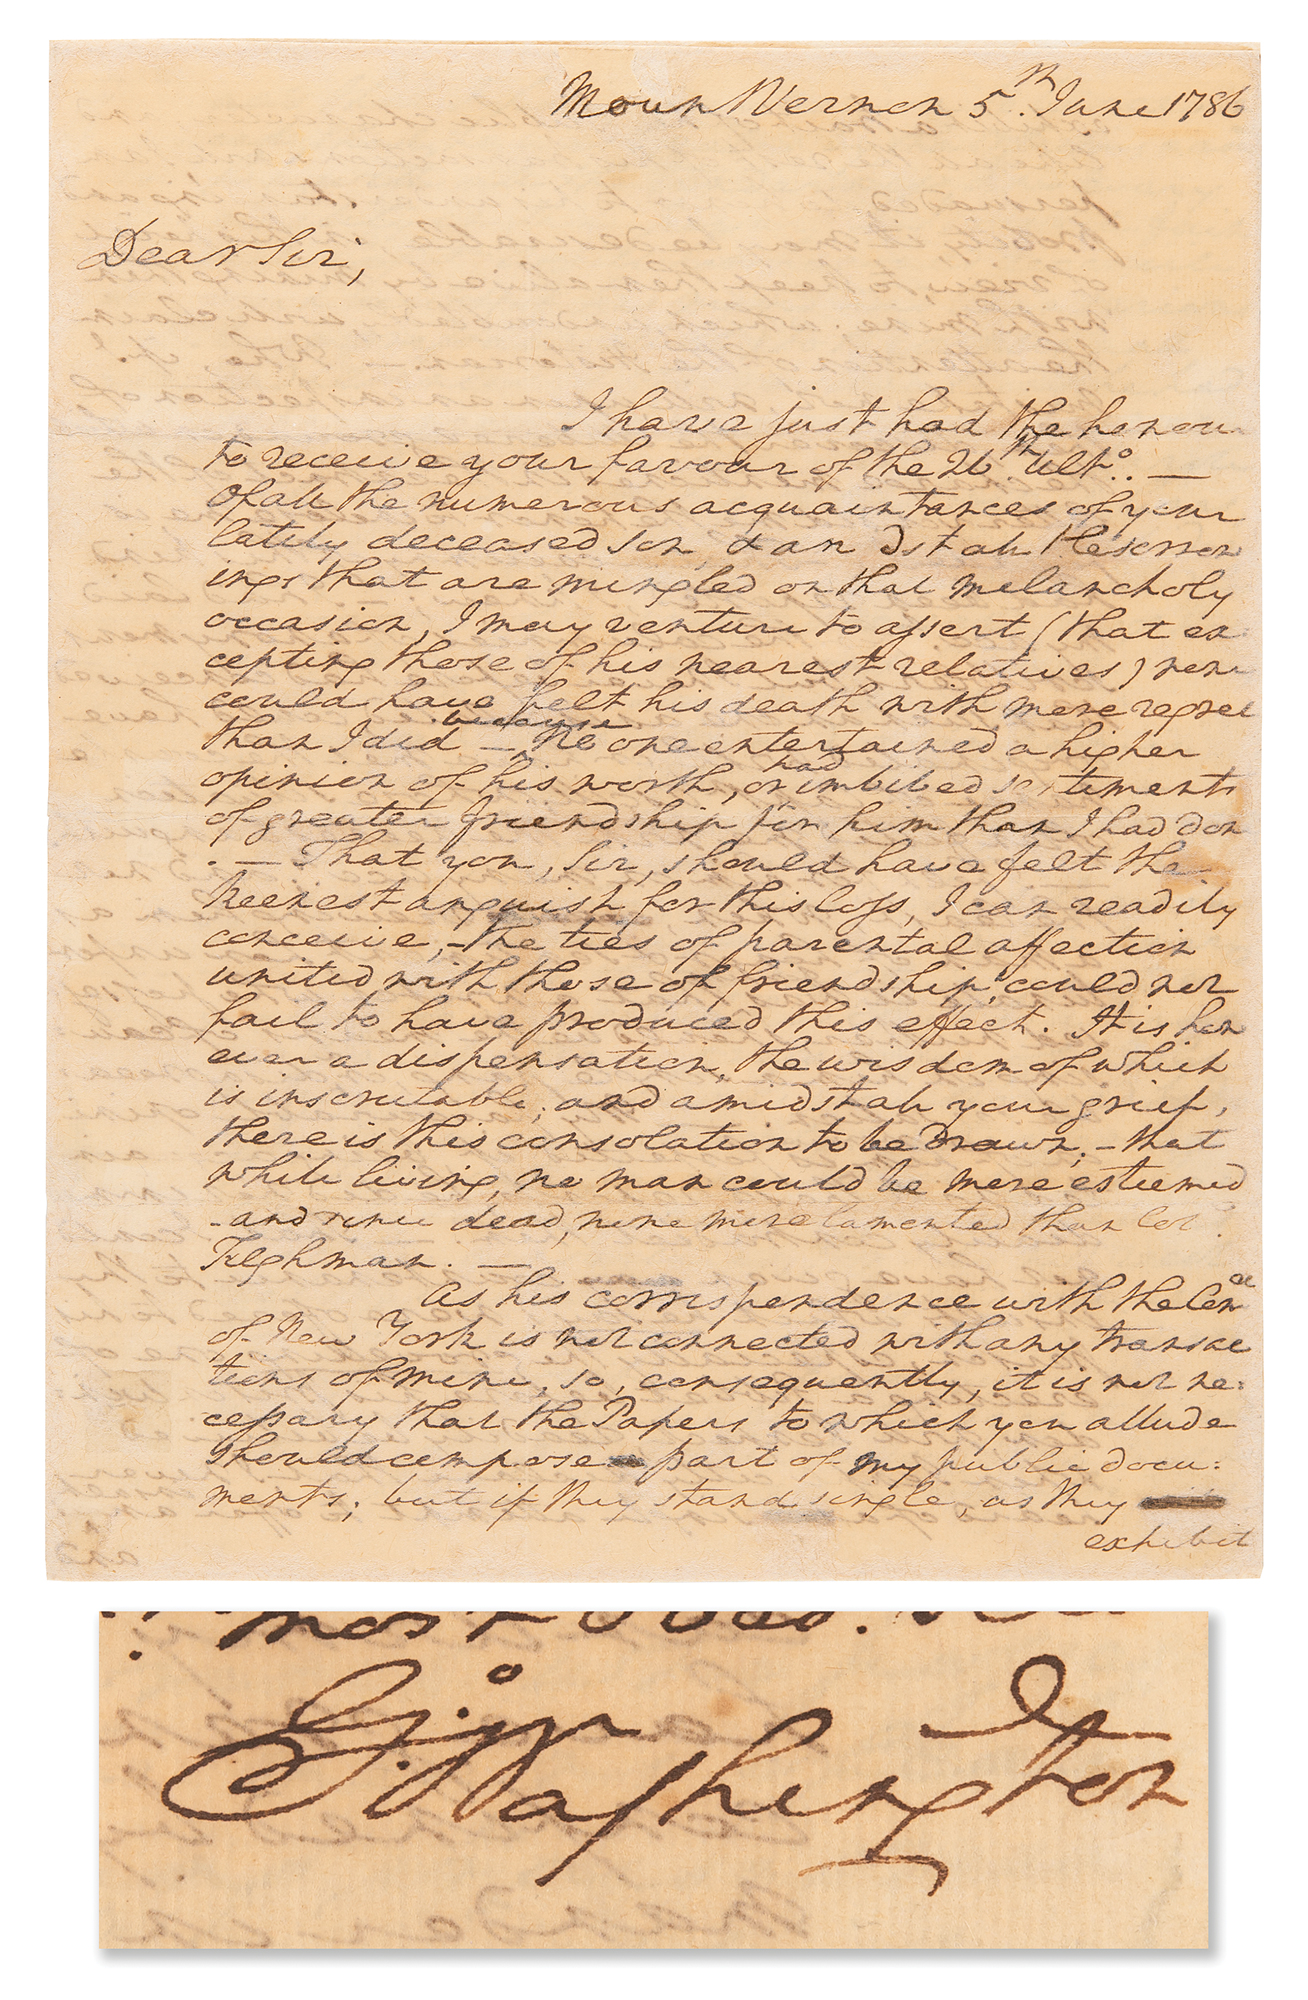 Mount Vernon 5th. June 1786
Dear Sir,
I have just had the honou
to receive your favour of the 26th. Ulto. —
Of all the numerous acquaintances of your
lately deceased son, & amidst all the sorrow
ings that are mingled on that melancholy
occasion, I may venture to assert (that ex
cepting those of his nearest relatives) none
could have felt his death with more regret
because
than I did — No one entertained a higher
had
opinion of his worth, or imbibed sentiments
of greater friendship for him than I had don
. — That you, Sir, should have felt the
keenest anguish for this loss, I can readily
conceive, – the ties of parental affection
united with those of friendship, could not
fail to have produced this effect. It is how
ever a dispensation, the wisdom of which
is inscrutable; and amidst all your grief,
there is this consolation to be drawn, – that
while living, no man could be more esteemed
– and since dead, none more lamented than Col.
Tilghman. —
As his correspondence with the Comee
of New York is not connected with any transac
tions of mine, so, consequently, it is not ne:
cessary that the Papers to which you allude
should compose part of my public docu:
ments; but if they stand single, as they
exhibit
most Obed.
Go: Washington